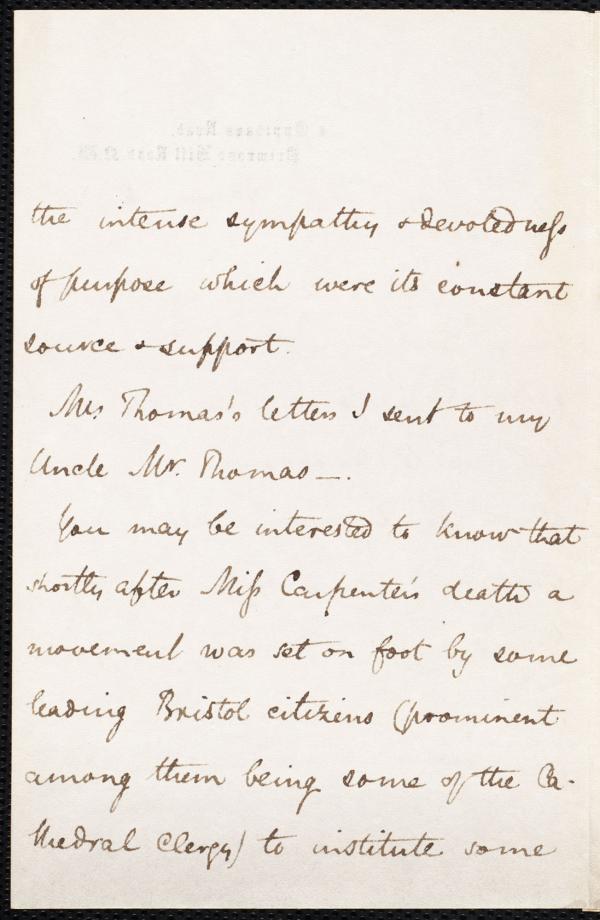 the intense sympathy & devotedness
of purpose which were its constant
source & support.
Mrs Thomas's letters I sent to my
Uncle Mr. Thomas —.
You may be interested to know that
shortly after Miss Carpenter's death a
movement was set on foot by some
leading Bristol citizens (prominent
among them being some of the Ca-
thedral Clergy) to institute some